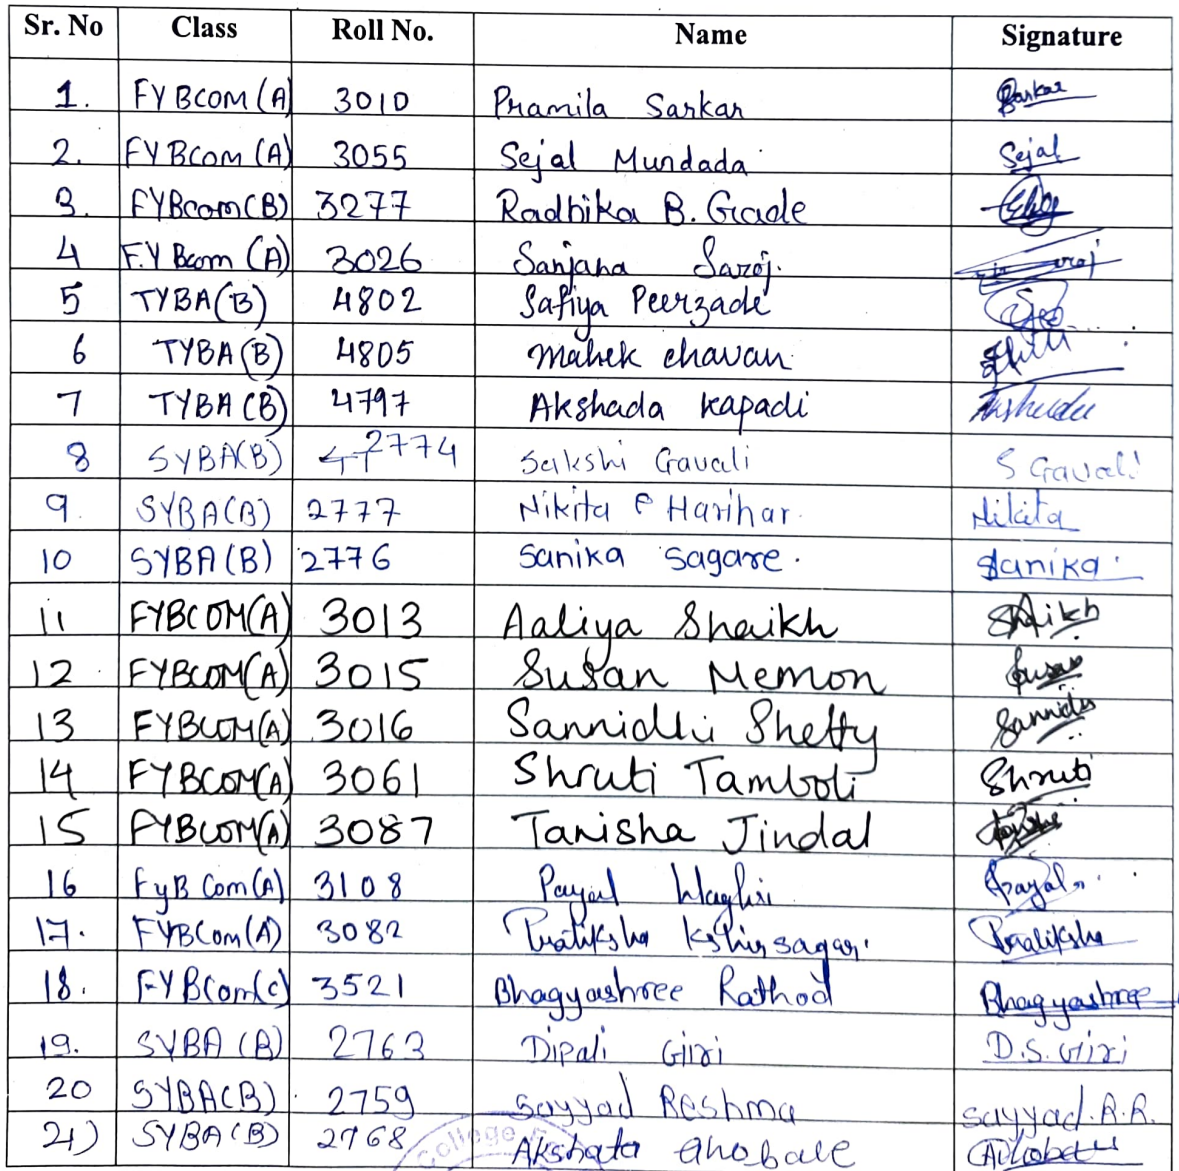 Sr. No Class Roll No. Name Signature
1. FYBCOM (A) 3010 Pramila Sarkar Sarkar
2. FYBCom (A) 3055 Sejal Mundada Sejal
3. FYBcom(B) 3277 Radhika B. Gade
4 F.Y Bcom (A) 3026 Sanjana Saroj.
5 TYBA(B) 4802 Safiya Peerzade
6 TYBA(B) 4805 Mahek chavan
7 TYBA (B) 4797 Akshada Kapadi
8 SYBA(B) 2774 Sakshi Gavali S Gavali
9. SYBA(B) 2777 Nikita P Harihar. Nikita
10 SYBA(B) 2776 Sanika Sagare. Sanika
11 FYBCOM(A) 3013 Aaliya Shaikh Shaikh
12 FYBCOM(A) 3015 Susan Memon Susan
13 FYBCOM(A) 3016 Sannidhi Shetty Sannidhi
14 FYBCOM(A) 3061 Shruti Tamboli Shruti
15 FYBCOM(A) 3087 Tanisha Jindal
16 FyB Com(A) 3108 Payal Waghiri Payal
17. FYBCom(A) 3082 Pratiksha Kshirsagar. Pratiksha
18. FYBCom(c) 3521 Bhagyashree Rathod Bhagyashree
19. SYBA (B) 2763 Dipali Giri D.S. Giri
20 SYBA(B) 2759 Sayyad Reshma Sayyad.R.R.
21) SYBA(B) 2768 Akshata Ghobale
College